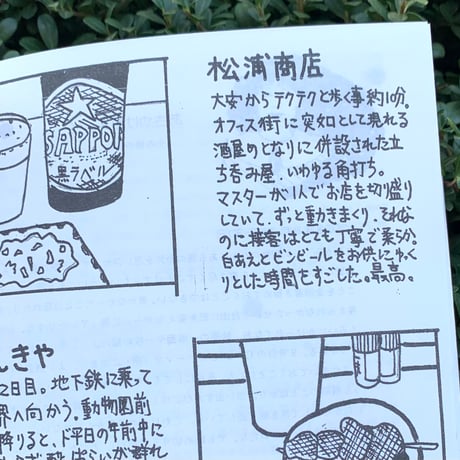 SAPPOR
黒ラベル
松浦商店
大安からテクテクと歩く事約10分。
オフィス街に突如として現れる
酒屋のとなりに併設された立
ち呑み屋、いわゆる角打ち。
マスターが1人でお店を切り盛り
していて、ずっと動きまくり、それな
のに接客はとても丁寧で柔らか。
白あえとビンビールをお供にゆっく
りとした時間をすごした。最高。
んきや
2日目。地下鉄に乗って
界へ向かう。動物園前
降りると、ド平日の午前中に